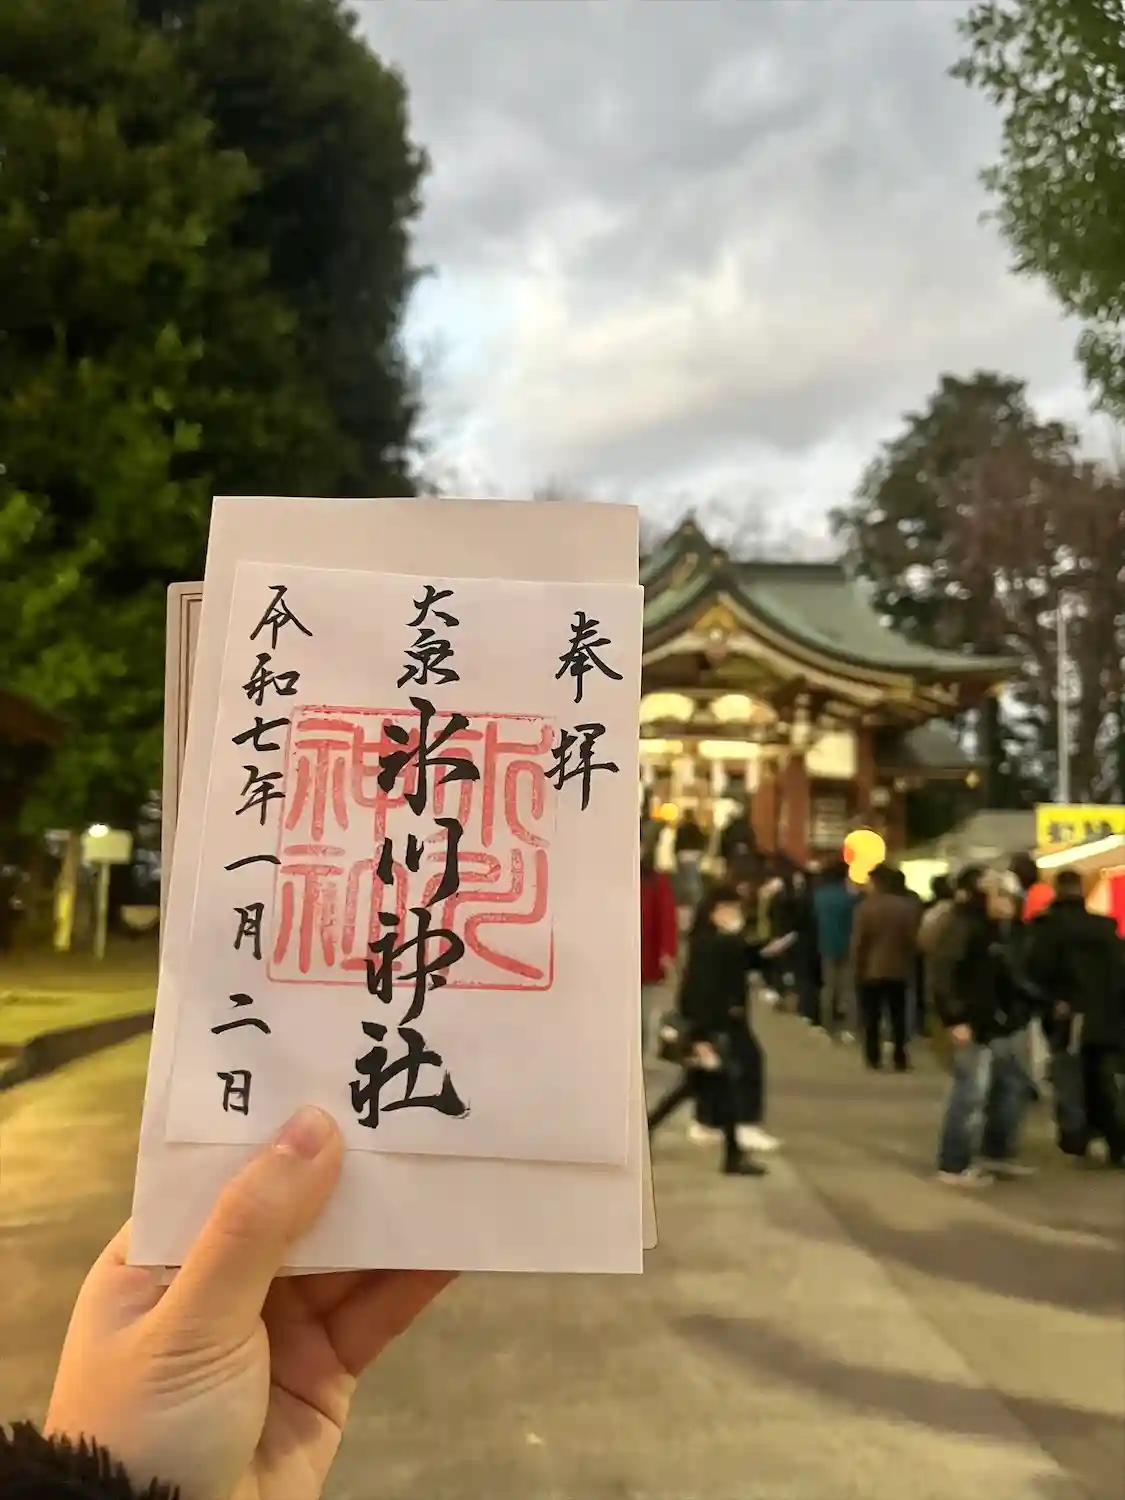 奉拝
大泉
氷川神社
令和七年一月二日
氷川
神社